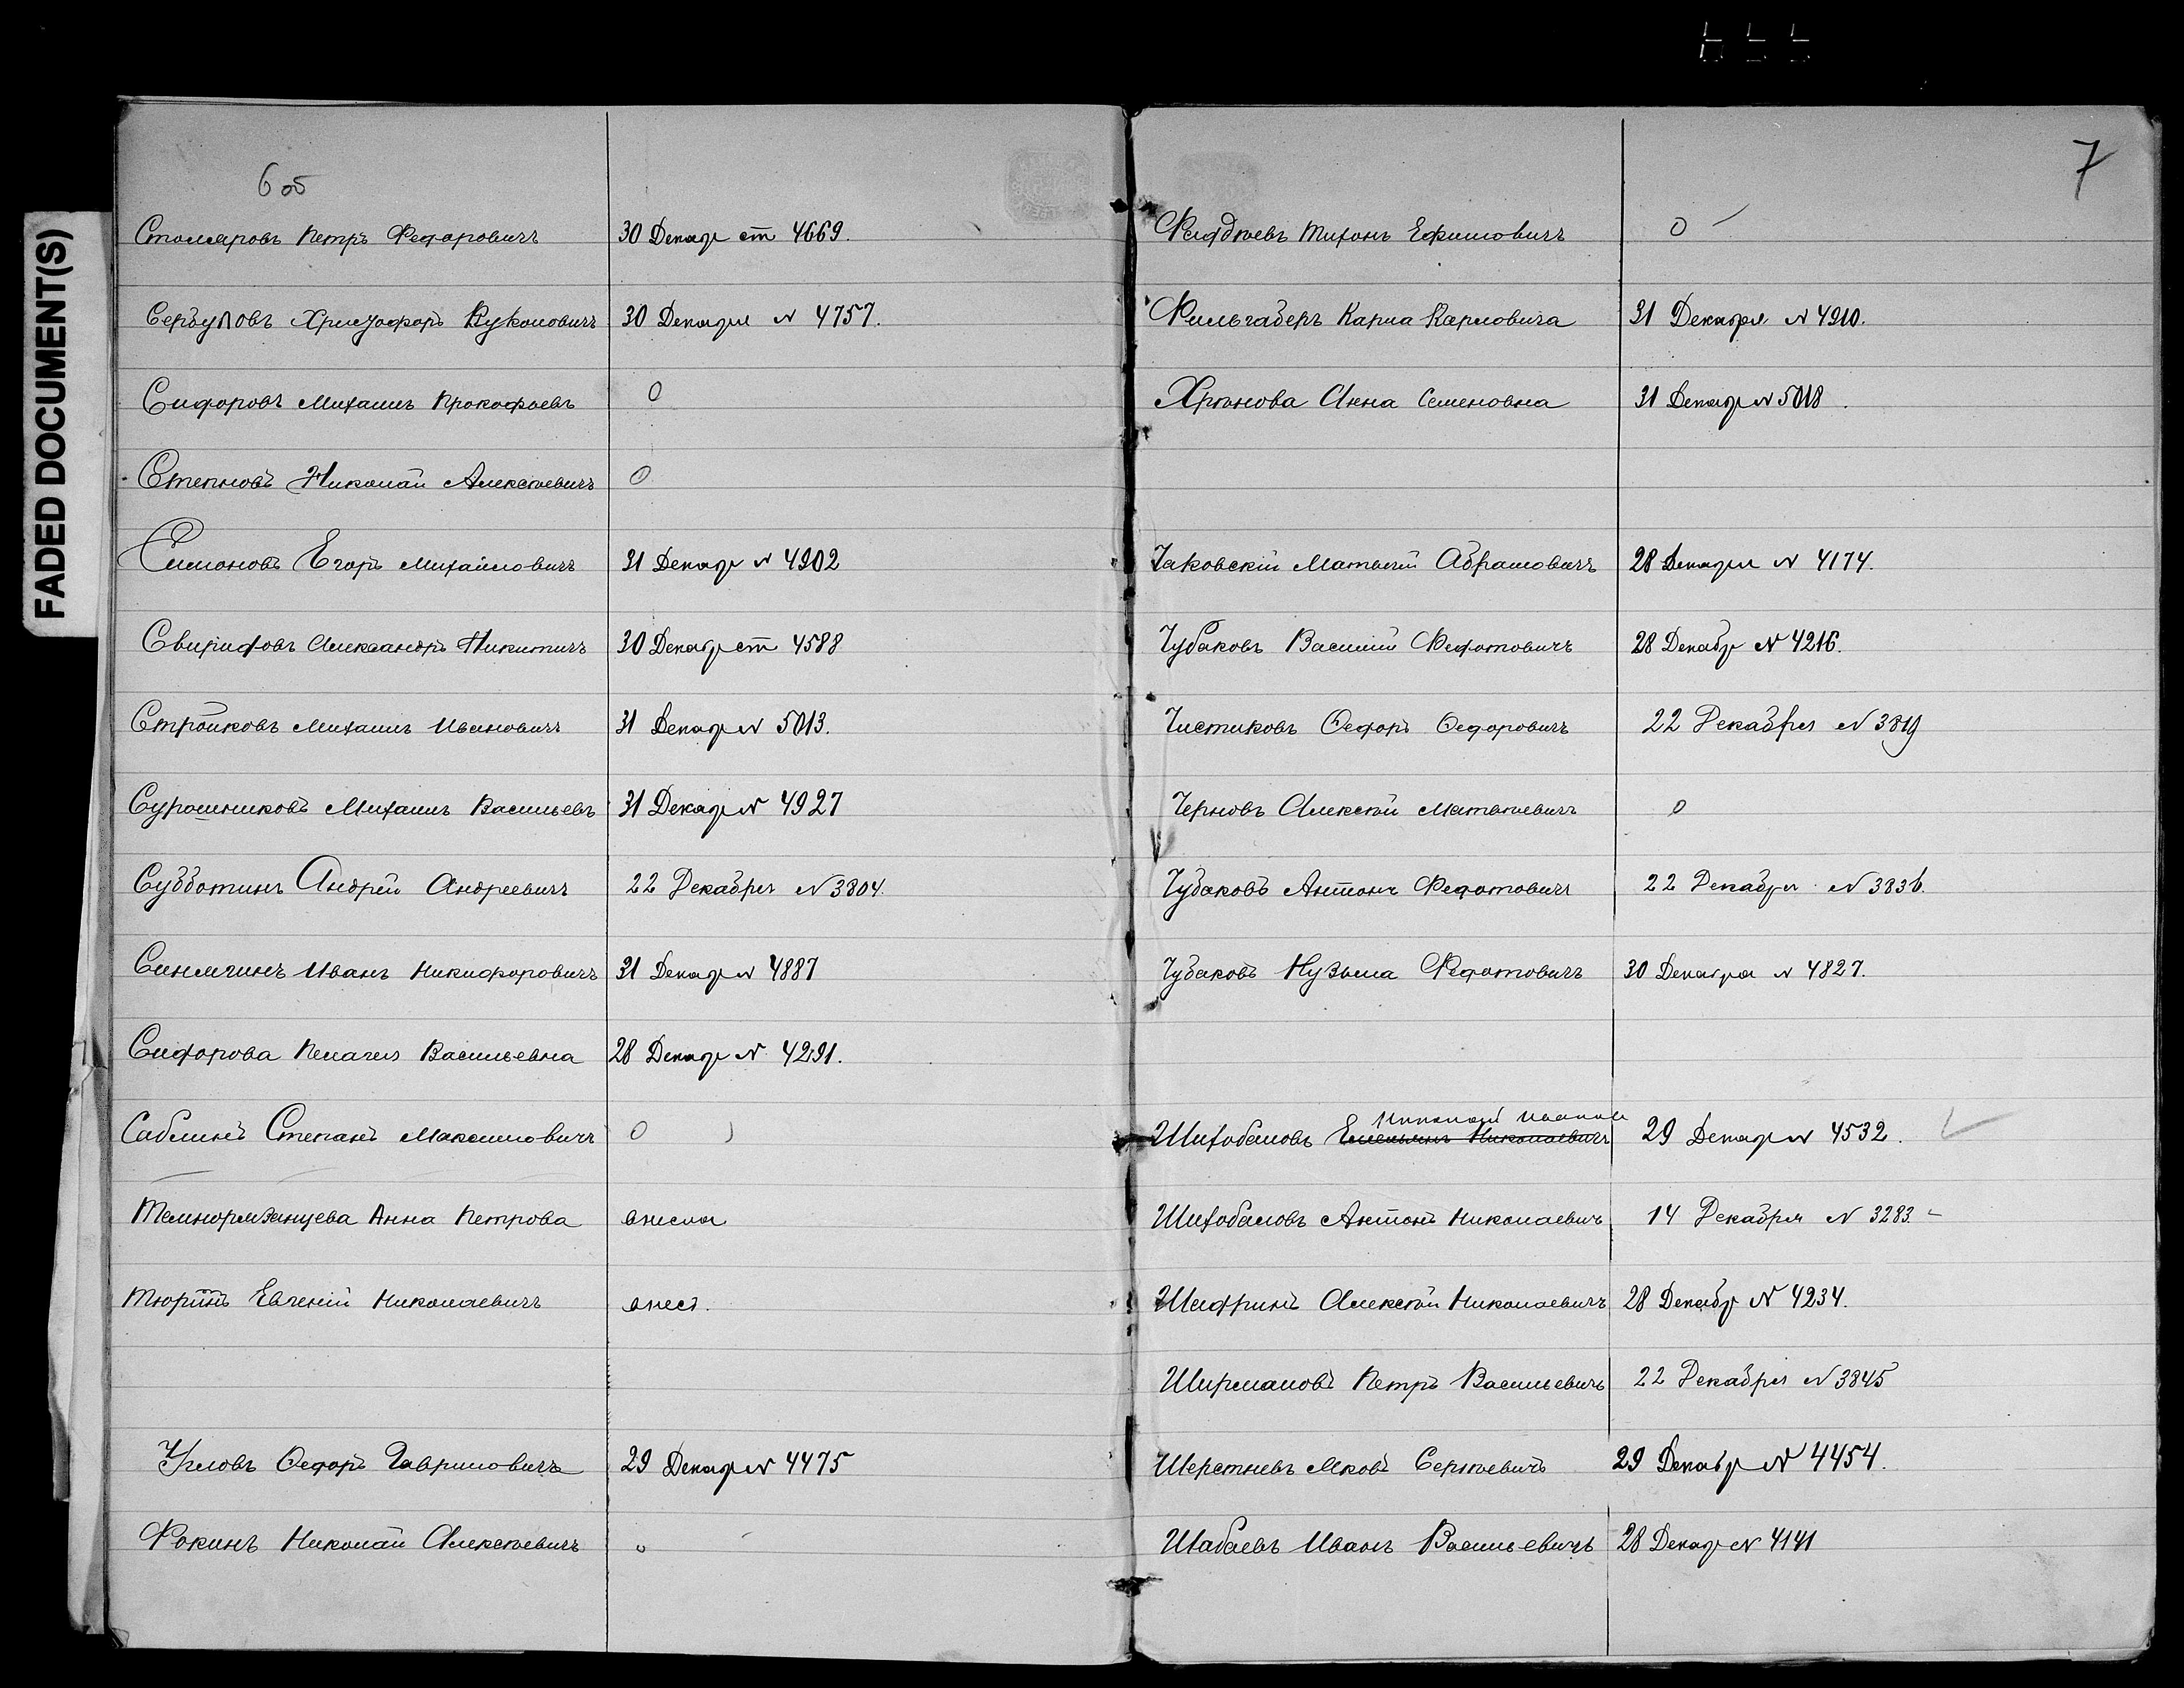 FADED DOCUMENT(S)
6 об
Столяровъ Петръ Федоровичъ 30 Декабр ст 4669.
Сербуловъ Христофоръ 30 Декабря № 4757.
Сидоровъ Михаилъ Прокофьевъ 0
Степновъ Николай Алексѣевичъ 0
Симоновъ Егоръ Михайловичъ 31 Декабр № 4902
Свиридовъ Александръ Никитичъ 30 Декабр ст 4588
Стройковъ Михаилъ Ивановичъ 31 Декабр № 5013.
Сурошниковъ Михаилъ Васильевъ 31 Декабр № 4927
Субботинъ Андрей Андреевичъ 22 Декабря № 3804.
Синягинъ Иванъ Никифоровичъ 31 Декабр № 4887
Сидорова Пелагея Васильевна 28 Декабр № 4291.
Саблинъ Степанъ Максимовичъ 0
Анна Петрова внесла
Тюринъ Евгеній Николаевичъ внесъ.
Угловъ Ѳедоръ Гавриловичъ 29 Декабр № 4475
Фокинъ Николай Алексѣевичъ 0
7
Фаддѣевъ Тихонъ Ефимовичъ 0
Фильгаберъ Карла Карловича 31 Декабря № 4910.
Хрѣнова Анна Семеновна 31 Декабр № 5018.
Чаковскій Матвѣй Абрамовичъ 28 Декабря № 4174.
Чубаковъ Василій Федотовичъ 28 Декабр № 4216.
Чистиковъ Ѳедоръ Ѳедоровичъ 22 Декабря № 3819
Черновъ Алексѣй Матвѣевичъ 0
Чубаковъ Антонъ Федотовичъ 22 Декабря № 3836.
Чубаковъ Кузьма Федотовичъ 30 Декабря № 4827.
Николай Иванов
Шихобаловъ Емельянъ Николаевичъ 29 Декабр № 4532.
Шихобаловъ Антонъ Николаевичъ 14 Декабря № 3283.
Шадринъ Алексѣй Николаевичъ 28 Декабр № 4234.
Ширмановъ Петръ Васильевичъ 22 Декабря № 3845
Шерстневъ Яковъ Сергѣевичъ 29 Декабр № 4454.
Шабаевъ Иванъ Васильевичъ 28 Декабр № 4141